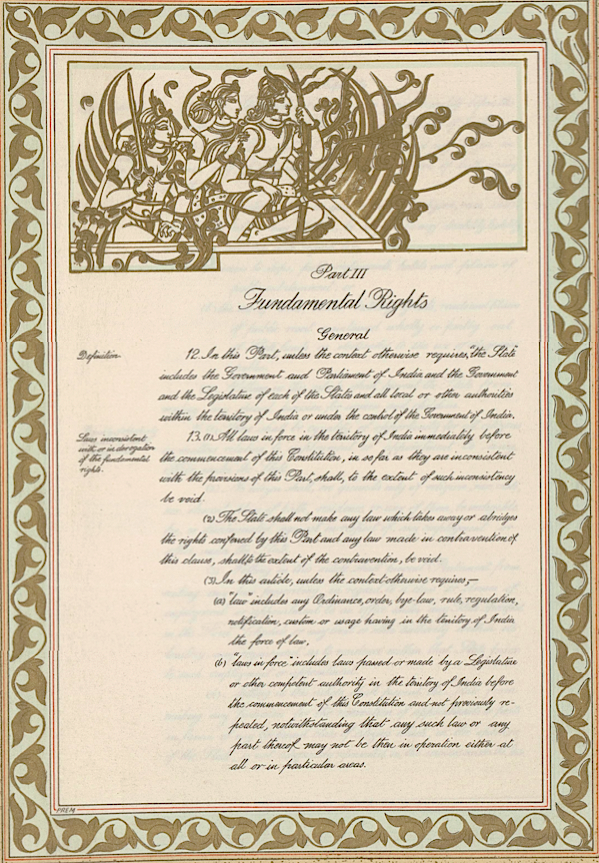 Part III
Fundamental Rights
General
Definition.
12. In this Part, unless the context otherwise requires, "the State"
includes the Government and Parliament of India and the Government
and the Legislature of each of the States and all local or other authorities
within the territory of India or under the control of the Government of India.
Laws inconsistent
with or in derogation
of the fundamental
rights.
13. (1) All laws in force in the territory of India immediately before
the commencement of this Constitution, in so far as they are inconsistent
with the provisions of this Part, shall, to the extent of such inconsistency
be void.
(2) The State shall not make any law which takes away or abridges
the rights conferred by this Part and any law made in contravention of
this clause, shall to the extent of the contravention, be void.
(3) In this article, unless the context otherwise requires,—
(a) "law" includes any Ordinance, order, bye-law, rule, regulation,
notification, custom or usage having in the territory of India
the force of law,
(b) "laws in force" includes laws passed or made by a Legislature
or other competent authority in the territory of India before
the commencement of this Constitution and not previously re-
pealed, notwithstanding that any such law or any
part thereof may not be then in operation either at
all or in particular areas.
PREM